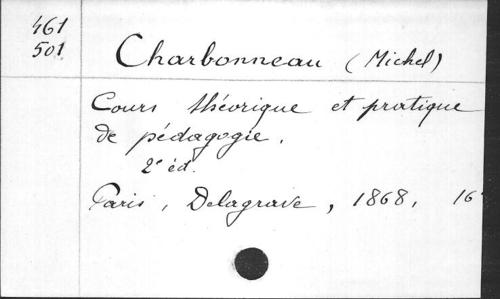 461
501
Charbonneau (Michel)
Cours théorique et pratique
de pédagogie.
2e éd.
Paris, Delagrave, 1868, 16°